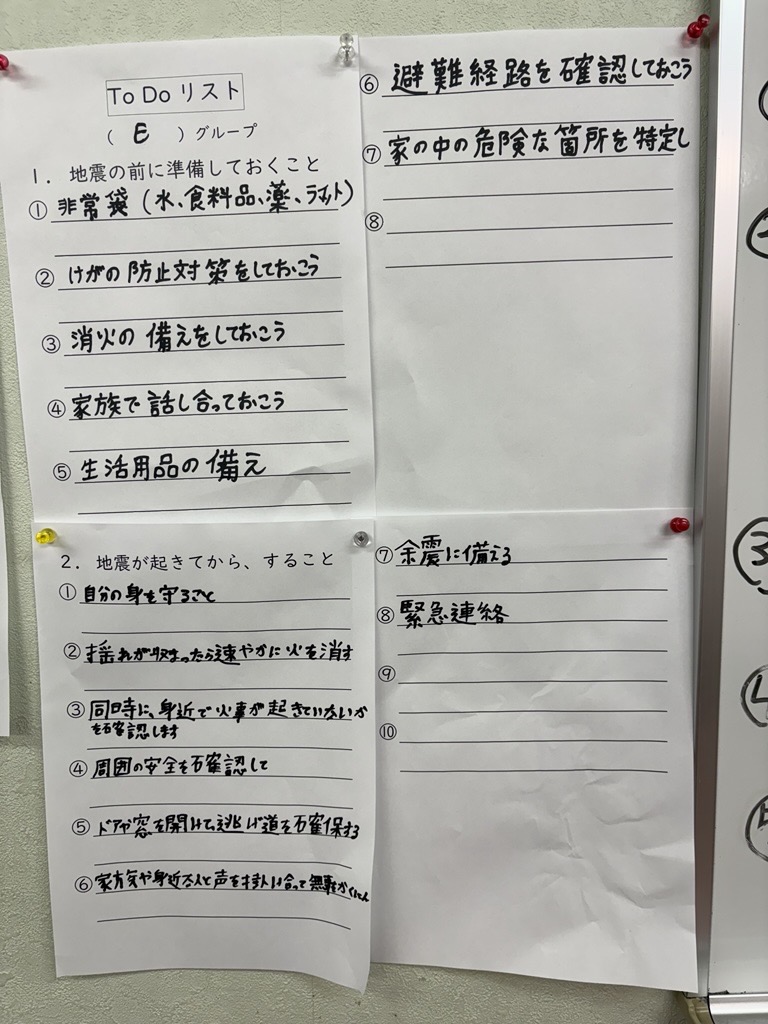 To Do リスト
( E ) グループ
1. 地震の前に準備しておくこと
① 非常袋 (水、食料品、薬、ライト)
② けがの防止対策をしておこう
③ 消火の備えをしておこう
④ 家族で話し合っておこう
⑤ 生活用品の備え
⑥ 避難経路を確認しておこう
⑦ 家の中の危険な箇所を特定し
⑧
2. 地震が起きてから、すること
① 自分の身を守ること
② 揺れが収まったら速やかに火を消す
③ 同時に、身近で火事が起きていないか
を確認します
④ 周囲の安全を確認して
⑤ ドアや窓を開けて、逃げ道を確保する
⑥ 家族や身近な人と声を掛け合って
⑦ 余震に備える
⑧ 緊急連絡
⑨
⑩